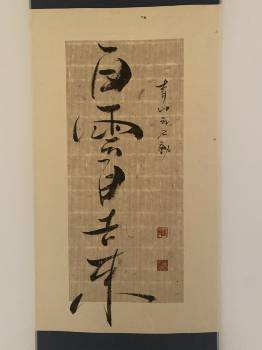 青山元不動
白雲自去来